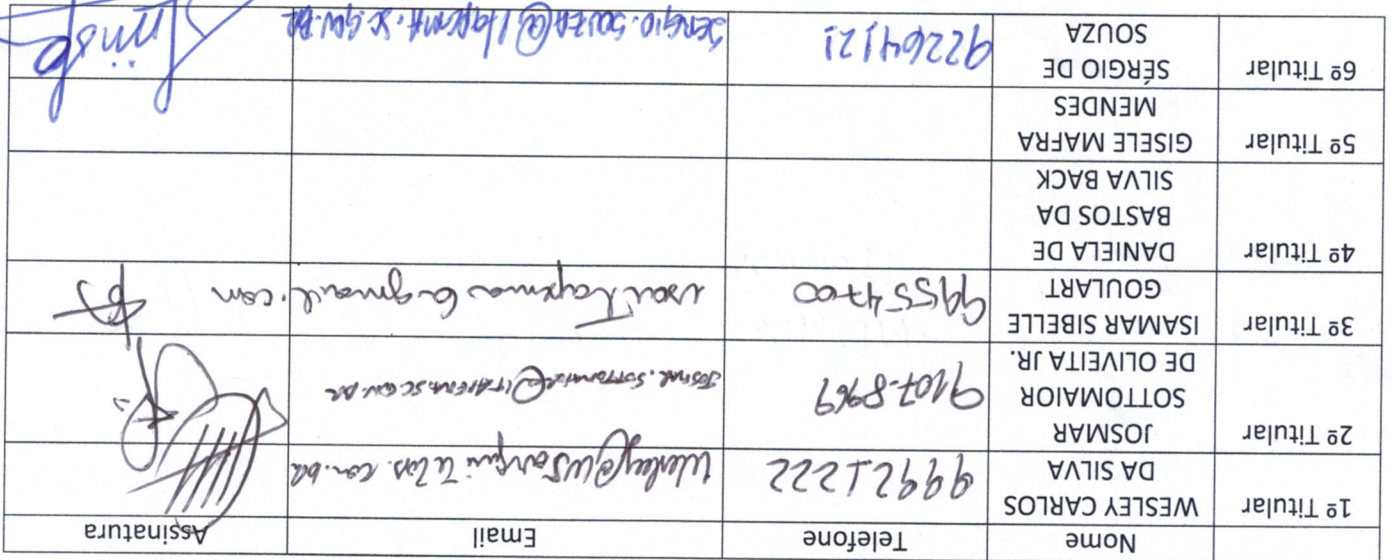 Nome Telefone Email Assinatura
1º Titular WESLEY CARLOS DA SILVA 99921222 wesley@wsarquitetos.com.br
2º Titular JOSMAR SOTTOMAIOR DE OLIVEITA JR. 9107-8969
3º Titular ISAMAR SIBELLE GOULART 99554700
4º Titular DANIELA DE BASTOS DA SILVA BACK
5º Titular GISELE MAFRA MENDES
6º Titular SÉRGIO DE SOUZA 92264121 SERGIO.SOUZA@ITAPEMA.SC.GOV.BR